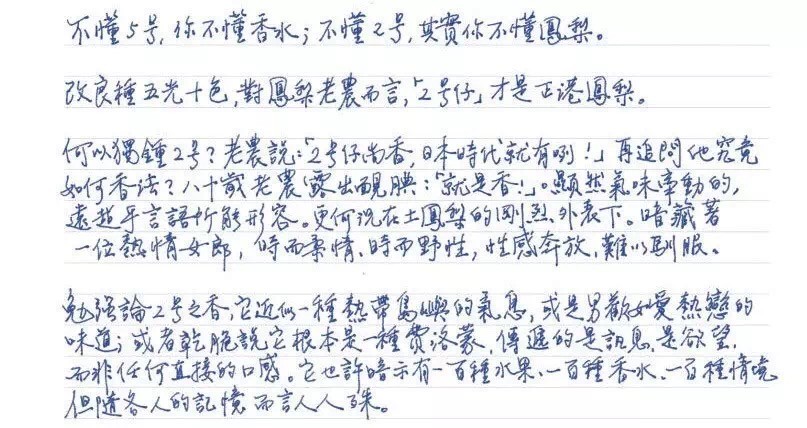 不懂5号,你不懂香水;不懂2号,其實你不懂鳳梨。
改良種五光十色,對鳳梨老農而言,「2号仔」才是正港鳳梨。
何以獨鍾2号?老農說:「2号仔尚香,日本時代就有咧!」再追問他究竟
如何香法?八十歲老農露出靦腆:「就是香!」。顯然氣味牽動的,
遠超乎言語所能形容。更何況在土鳳梨的剛烈外表下。暗藏著
一位熱情女郎,時而柔情、時而野性,性感奔放,難以馴服。
勉强論2号之香,它近似一種熱帶島嶼的氣息,或是男歡女愛熱戀的
味道;或者乾脆說它根本是一種費洛蒙,傳遞的是訊息,是欲望,
而非任何直接的口感。它也許暗示有一百種水果、一百種香水、一百種情境
但隨各人的記憶而言人人殊。